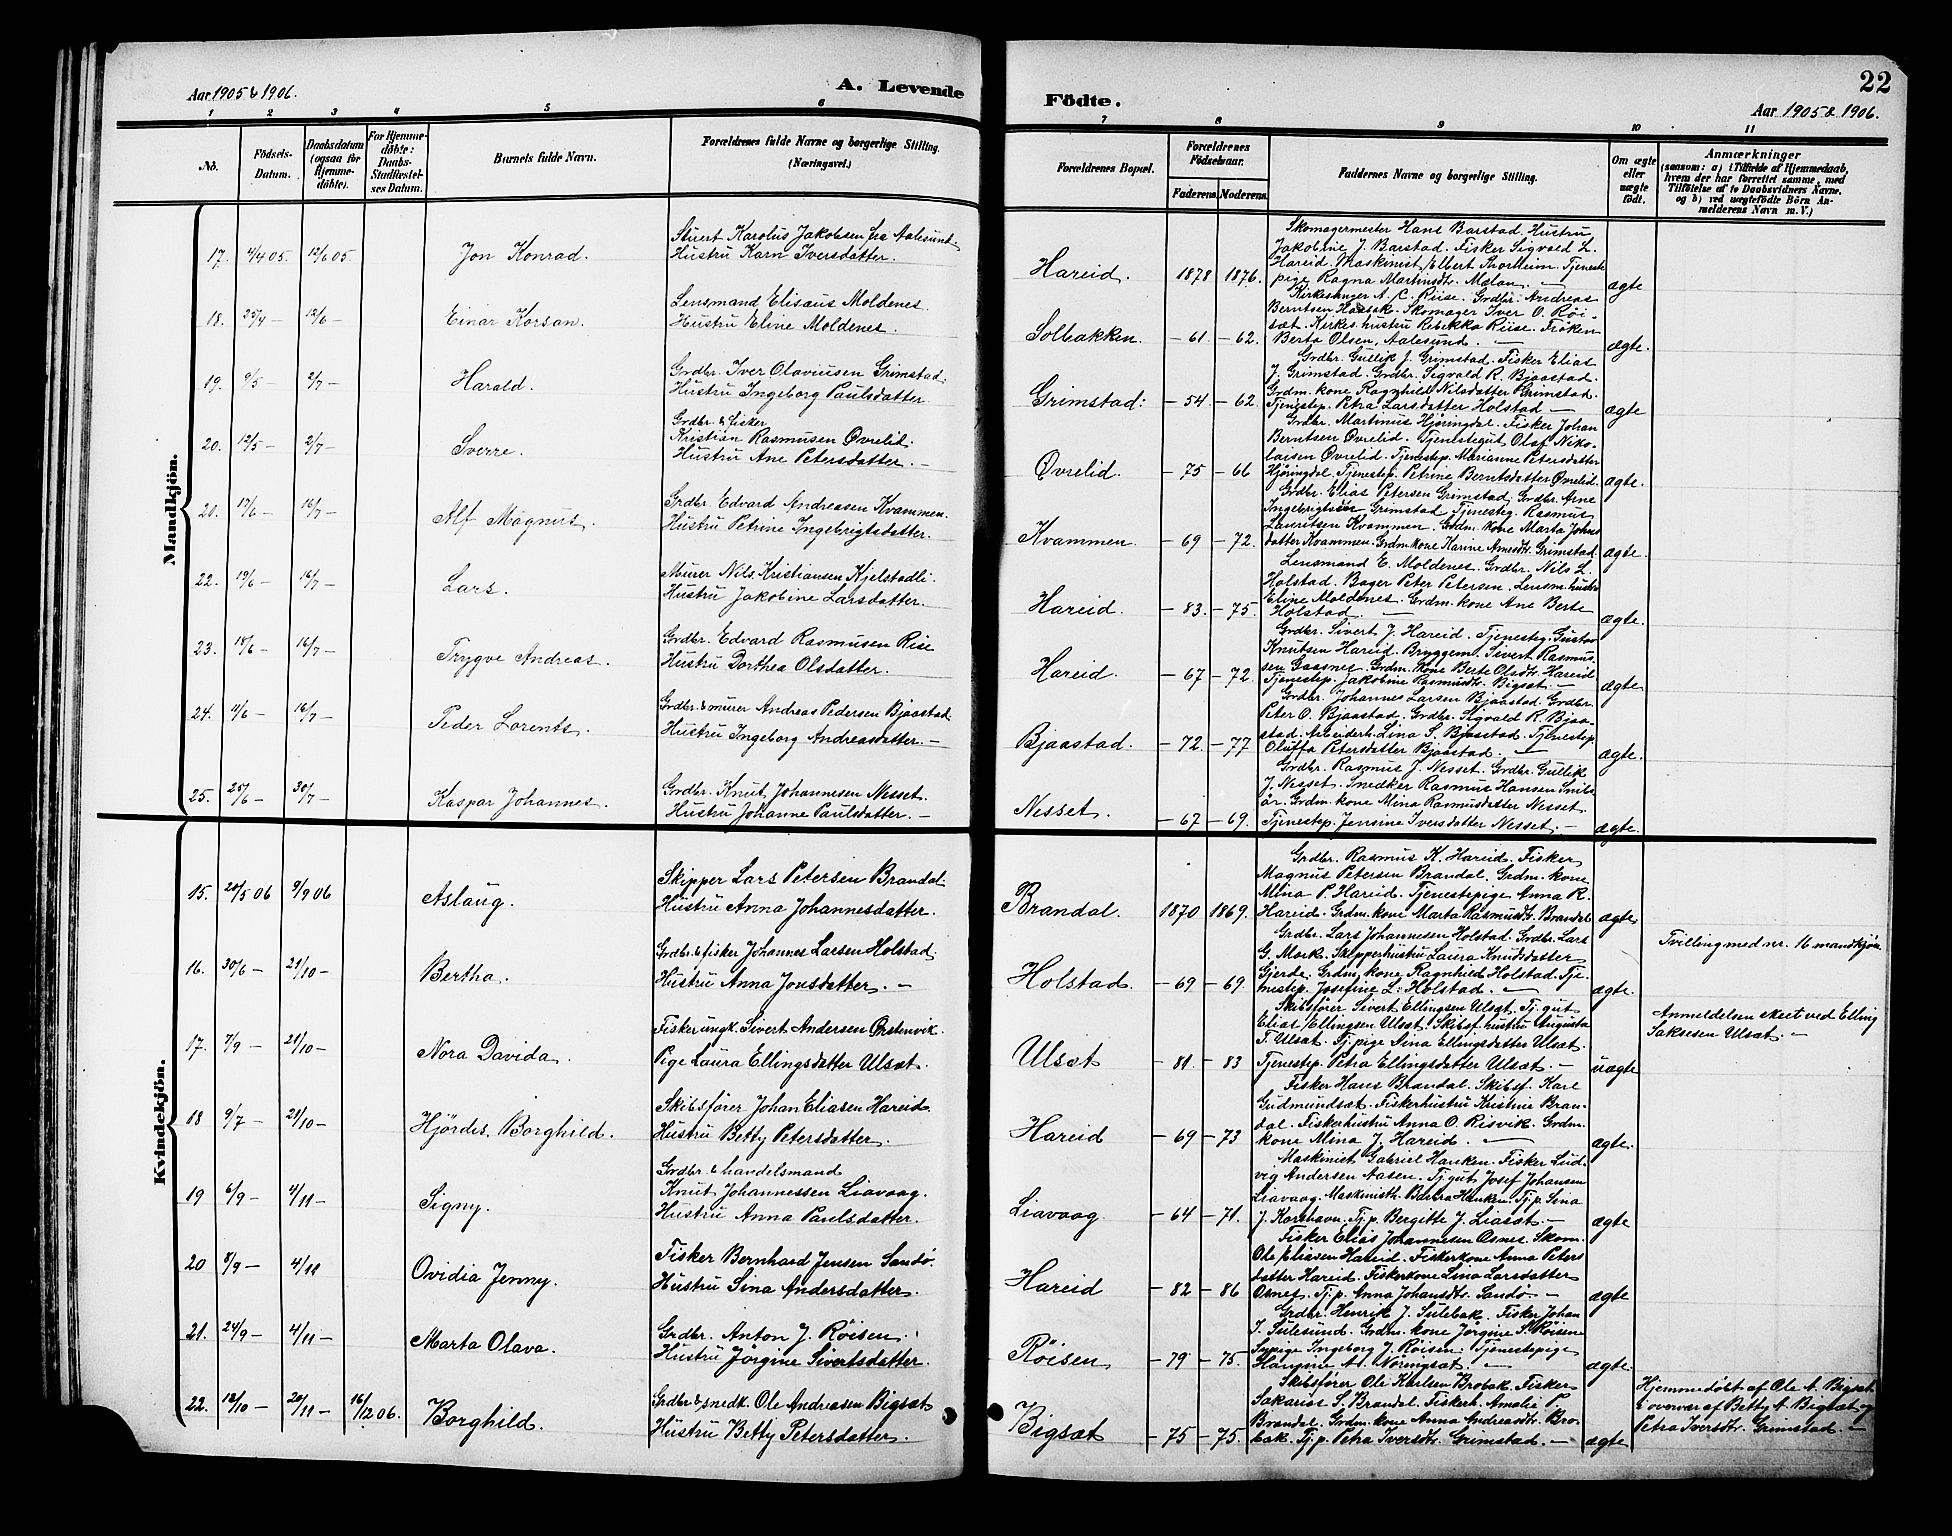 Aar 1905 & 1906.
A. Levende
Födte.
22
Aar 1905 & 1906.
1 2 3 4 5 6 7 8 9 10 11
No.
Födsels-
Datum.
Daabsdatum
(ogsaa for
Hjemme-
döbte).
For Hjemme-
döbte:
Daabs-
Stadfæstel-
ses Datum.
Barnets fulde Navn.
Forældrenes fulde Navne og borgerlige Stilling.
(Næringsvei.)
Forældrenes Bopæl.
Forældrenes
Födselsaar.
Faderens. Moderens.
Faddernes Navne og borgerlige Stilling.
Om ægte
eller
uægte
födt.
Anmærkninger
(saasom: a) i Tilfælde af Hjemmedaab,
hvem der har forrettet samme, med
Tilföielse af to Daabsvidners Navne.
og b) ved uægtefödte Börn An-
melderens Navn m. V.)
Mandkjön.
17. 4/4 05 12/6 05 Jon Konrad.
Stuert Karolus Jakobsen fra Aalesund
Hustru Karn Iversdatter.
Hareid. 1878 1876.
Skomagermester Hans Barstad. Hustru
Jakobine J. Barstad. Fisker Sigvald L.
Hareid. Maskinist Elbert Thorheim. Tjeneste
pige Ragna Martinsdtr. Melan —
ægte
18. 25/4 — 12/6 — Einar Korsan.
Lensmand Elisæus Moldenes
Hustru Eline Moldenes.
Solbakken. — 61 — 62.
Kirkesanger A. C. Riise. Grdbr. Andreas
Berntsen Haasak. Skomager Iver O. Röi-
sæt. Kirkes. hustru Rebekka Riise. Fröken
Berta Olsen, Aalesund. —
ægte.
19. 9/5 — 2/7 — Harald.
Grdbr. Iver Olaviusen Grimstad
Hustru Ingeborg Paulsdatter
Grimstad: — 54. — 62.
Grdbr. Gullik J. Grimstad. Fisker Elias
J. Grimstad. Grdbr. Sigvald R. Bjaastad.
Grdm. kone Ragnhild Nilsdatter Grimstad.
Tjenestep. Petra Larsdatter Holstad —
ægte
20. 12/5 — 2/7 — Sverre.
Grdbr. & fisker
Kristian Rasmusen Øvrelid.
Hustru Ane Petersdatter. —
Øvrelid. — 75 — 66
Grdbr. Martinus Hjöringdal. Fisker Johan
Berntsen Øvrelid. Tjenestegut Olaf Niko-
laisen Øvrelid. Tjenestep. Marianne Petersdatter
Hjöringdal. Tjenestep. Petrine Berntsdatter Øvrelid.
ægte.
21. 17/6 — 16/7 — Alf Magnus.
Grdbr. Edvard Andreasen Kvammen.
Hustru Petrine Ingebrigtsdatter.
Kvammen — 69 — 72.
Grdbr. Elias Petersen Grimstad. Grdbr. Arne
Ingebrigtsen Grimstad Tjenesteg. Rasmus
Lauritsen Kvammen. Grdm. kone Marta Johns
datter Kvammen. Grdm. kone Karine Arnesdtr. Grimstad
ægte
22. 19/6 — 16/7 — Lars.
Murer Nils Kristiansen Kjelstadli.
Hustru Jakobine Larsdatter.
Hareid. — 83. — 75.
Lensmand E. Moldenes. Grdbr. Nils L.
Holstad. Bager Peter Petersen. Lensm. hustru
Eline Moldenes. Grdm. kone Ane Berte
Holstad —
ægte.
23. 18/6 — 16/7 — Trygve Andreas.
Grdbr. Edvard Rasmusen Rise
Hustru Dorthea Olsdatter.
Hareid. — 67 — 72
Grdbr. Sivert J. Hareid. Tjenesteg. Gustav
Knutsen Hareid. Bryggem. Sivert Rasmus
sen Gaasnes. Grdm. kone Berte Olsdtr. Hareid
Tjenestep. Jakobine Rasmusdtr. Bigsæt. —
ægte
24. 11/6 — 16/7 — Peder Lorents.
Grdbr. & murer Andreas Pedersen Bjaastad.
Hustru Ingeborg Andreasdatter. —
Bjaastad. — 72. — 77
Grdbr. Johannes Larsen Bjaastad. Grdbr.
Peter O. Bjaastad. Grdbr. Sigvald R. Bjaa-
stad. Arbeiderh. Lina S. Bjaastad. Tjenestep.
Oluffa Petersdatter Bjaastad. —
ægte.
25. 25/6 — 30/7 — Kaspar Johannes.
Grdbr. Knut Johannesen Nesset.
Hustru Johanne Paulsdatter. —
Nesset. — 67 — 69.
Grdbr. Rasmus J. Nesset. Grdbr. Gullik
J. Nesset. Snedker Rasmus Hansen
Grdm. kone Mina Rasmusdatter Nesset
Tjenestep. Jensine Iversdatter Nesset. —
ægte.
Kvindekjön.
15. 20/5 06 9/9 06 Aslaug.
Skipper Lars Petersen Brandal
Hustru Anna Johannesdatter.
Brandal. 1870 1869.
Grdbr. Rasmus K. Hareid. Fisker
Magnus Petersen Brandal. Grdm. kone
Mina P. Hareid. Tjenestepige Anna R.
Hareid. Grdm. kone Marta Rasmusdtr. Brandal
ægte
16. 30/6 — 21/10 — Bertha.
Grdbr. & fisker Johannes Larsen Holstad
Hustru Anna Jonsdatter. —
Holstad. — 69 — 69
Grdbr. Lars Johannesen Holstad. Grdbr. Lars
G. Mork. Skipperhustru Laura Knudsdatter
Gjerde. Grdm. kone Ragnhild Holstad. Tje-
nestep. Josefine L. Holstad. —
ægte.
Tvilling med nr. 16 mandkjön.
17. 7/9 — 21/10 — Nora Davida.
Fisker ungk. Sivert Andersen Ørstenvik.
Pige Laura Ellingsdatter Ulsæt.
Ulsæt — 81 — 83
Skibsförer Sivert Ellingsen Ulsæt. Tj. gut
Elias Ellingsen Ulsæt. Skibsf. hustru Augusta
T. Ulsæt. Tj. pige Sina Ellingsdatter Ulsæt.
Tjenestep. Petra Ellingsdatter Ulsæt. —
uægte
Anmeldelsen skeet ved Elling
Saksesen Ulsæt. —
18 9/7 — 21/10 — Hjördes. Borghild.
Skibsförer Johan Eliasen Hareid
Hustru Betty Petersdatter.
Hareid — 69 — 73
Fisker Hans Brandal. Skibsf. Karl
Gudmundsæt. Fiskerhustru Kristine Bran-
dal. Fiskerhustru Anna O. Risvik. Grdm.
kone Alina J. Hareid. —
ægte.
19 6/9 — 4/11 — Signy.
Grdbr. & handelsmand
Knut Johannessen Liavaag.
Hustru Anna Paulsdatter.
Liavaag — 64 — 71.
Maskinist Gabriel Hanken. Fisker Lud-
vig Andersen Aasen. Tj. gut Josef Johansen
Liavaag. Maskinisth. Barbra Hanken. Tj. p. Sina
J. Korshavn. Tj. p. Bergitte J. Liasæt —
ægte
20 8/9 — 4/11 Ovidia Jenny.
Fisker Bernhard Jensen Sandö.
Hustru Sina Andersdatter.
Hareid — 82 — 86
Fisker Elias Johannesen Osnes. Skom.
Ole Eliasen Hareid. Fiskerkone Anna Peters
datter Hareid. Fiskerkone Lina Larsdatter
Osnes. Tj. p. Anna Johansdtr. Sandö. —
ægte
21. 24/9 — 4/11 — Marta Olava.
Grdbr. Anton J. Röisen.
Hustru Jörgine Sivertsdatter.
Röisen — 79 — 75.
Grdbr. Henrik J. Sulebak. Fisker Johan
I. Sulesund. Grdm. kone Jörgine S. Röisen
Sypige Ingeborg J. Röisen. Tjenestepige
Hansine A. Nöringsæt. —
ægte.
22. 12/10 — 20/11 — 16/12 06. Borghild.
Grdbr & snedk. Ole Andreasen Bigsæt
Hustru Betty Petersdatter.
Bigsæt — 75 — 75.
Skibsförer Ole Karlsen Brobak. Fisker
Sakarias S. Brandal. Fiskerh. Amalie P.
Brandal. Grdm. kone Anna Andreasdtr. Bro-
bak. Tj. p. Petra Iversdtr. Grimstad. —
ægte
Hjemmedöbt af Ole A. Bigsæt
i overvær af Betty A. Bigsæt og
Petra Iversdtr. Grimstad. —